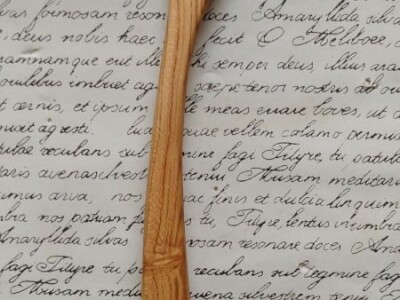 vas formosam reson doces Amaryllida silva
deus nobis haec fecit O Meliboee, d
ramnamque erit ille semper deus, illius aram
ovilibus imbuet ag saepe tener nostris ab ovi
et cernis, et ipsum lle meas errare boves, ut
misit agresti. lud quae vellem calamo permis
tulae recubans sub mine fagi Tityre, tu patula
taris avenasilvest tenui Musam meditari
imus arva, nos iae finis et dulcia linquim
bra nos patriam fug us tu, Tityre, lentus in umbra
Amaryllida silvas mosam resonare doces Ama
fagi Tityre tu p recubans sub tegmine fagi
Musam medit avena silvestrem tenui